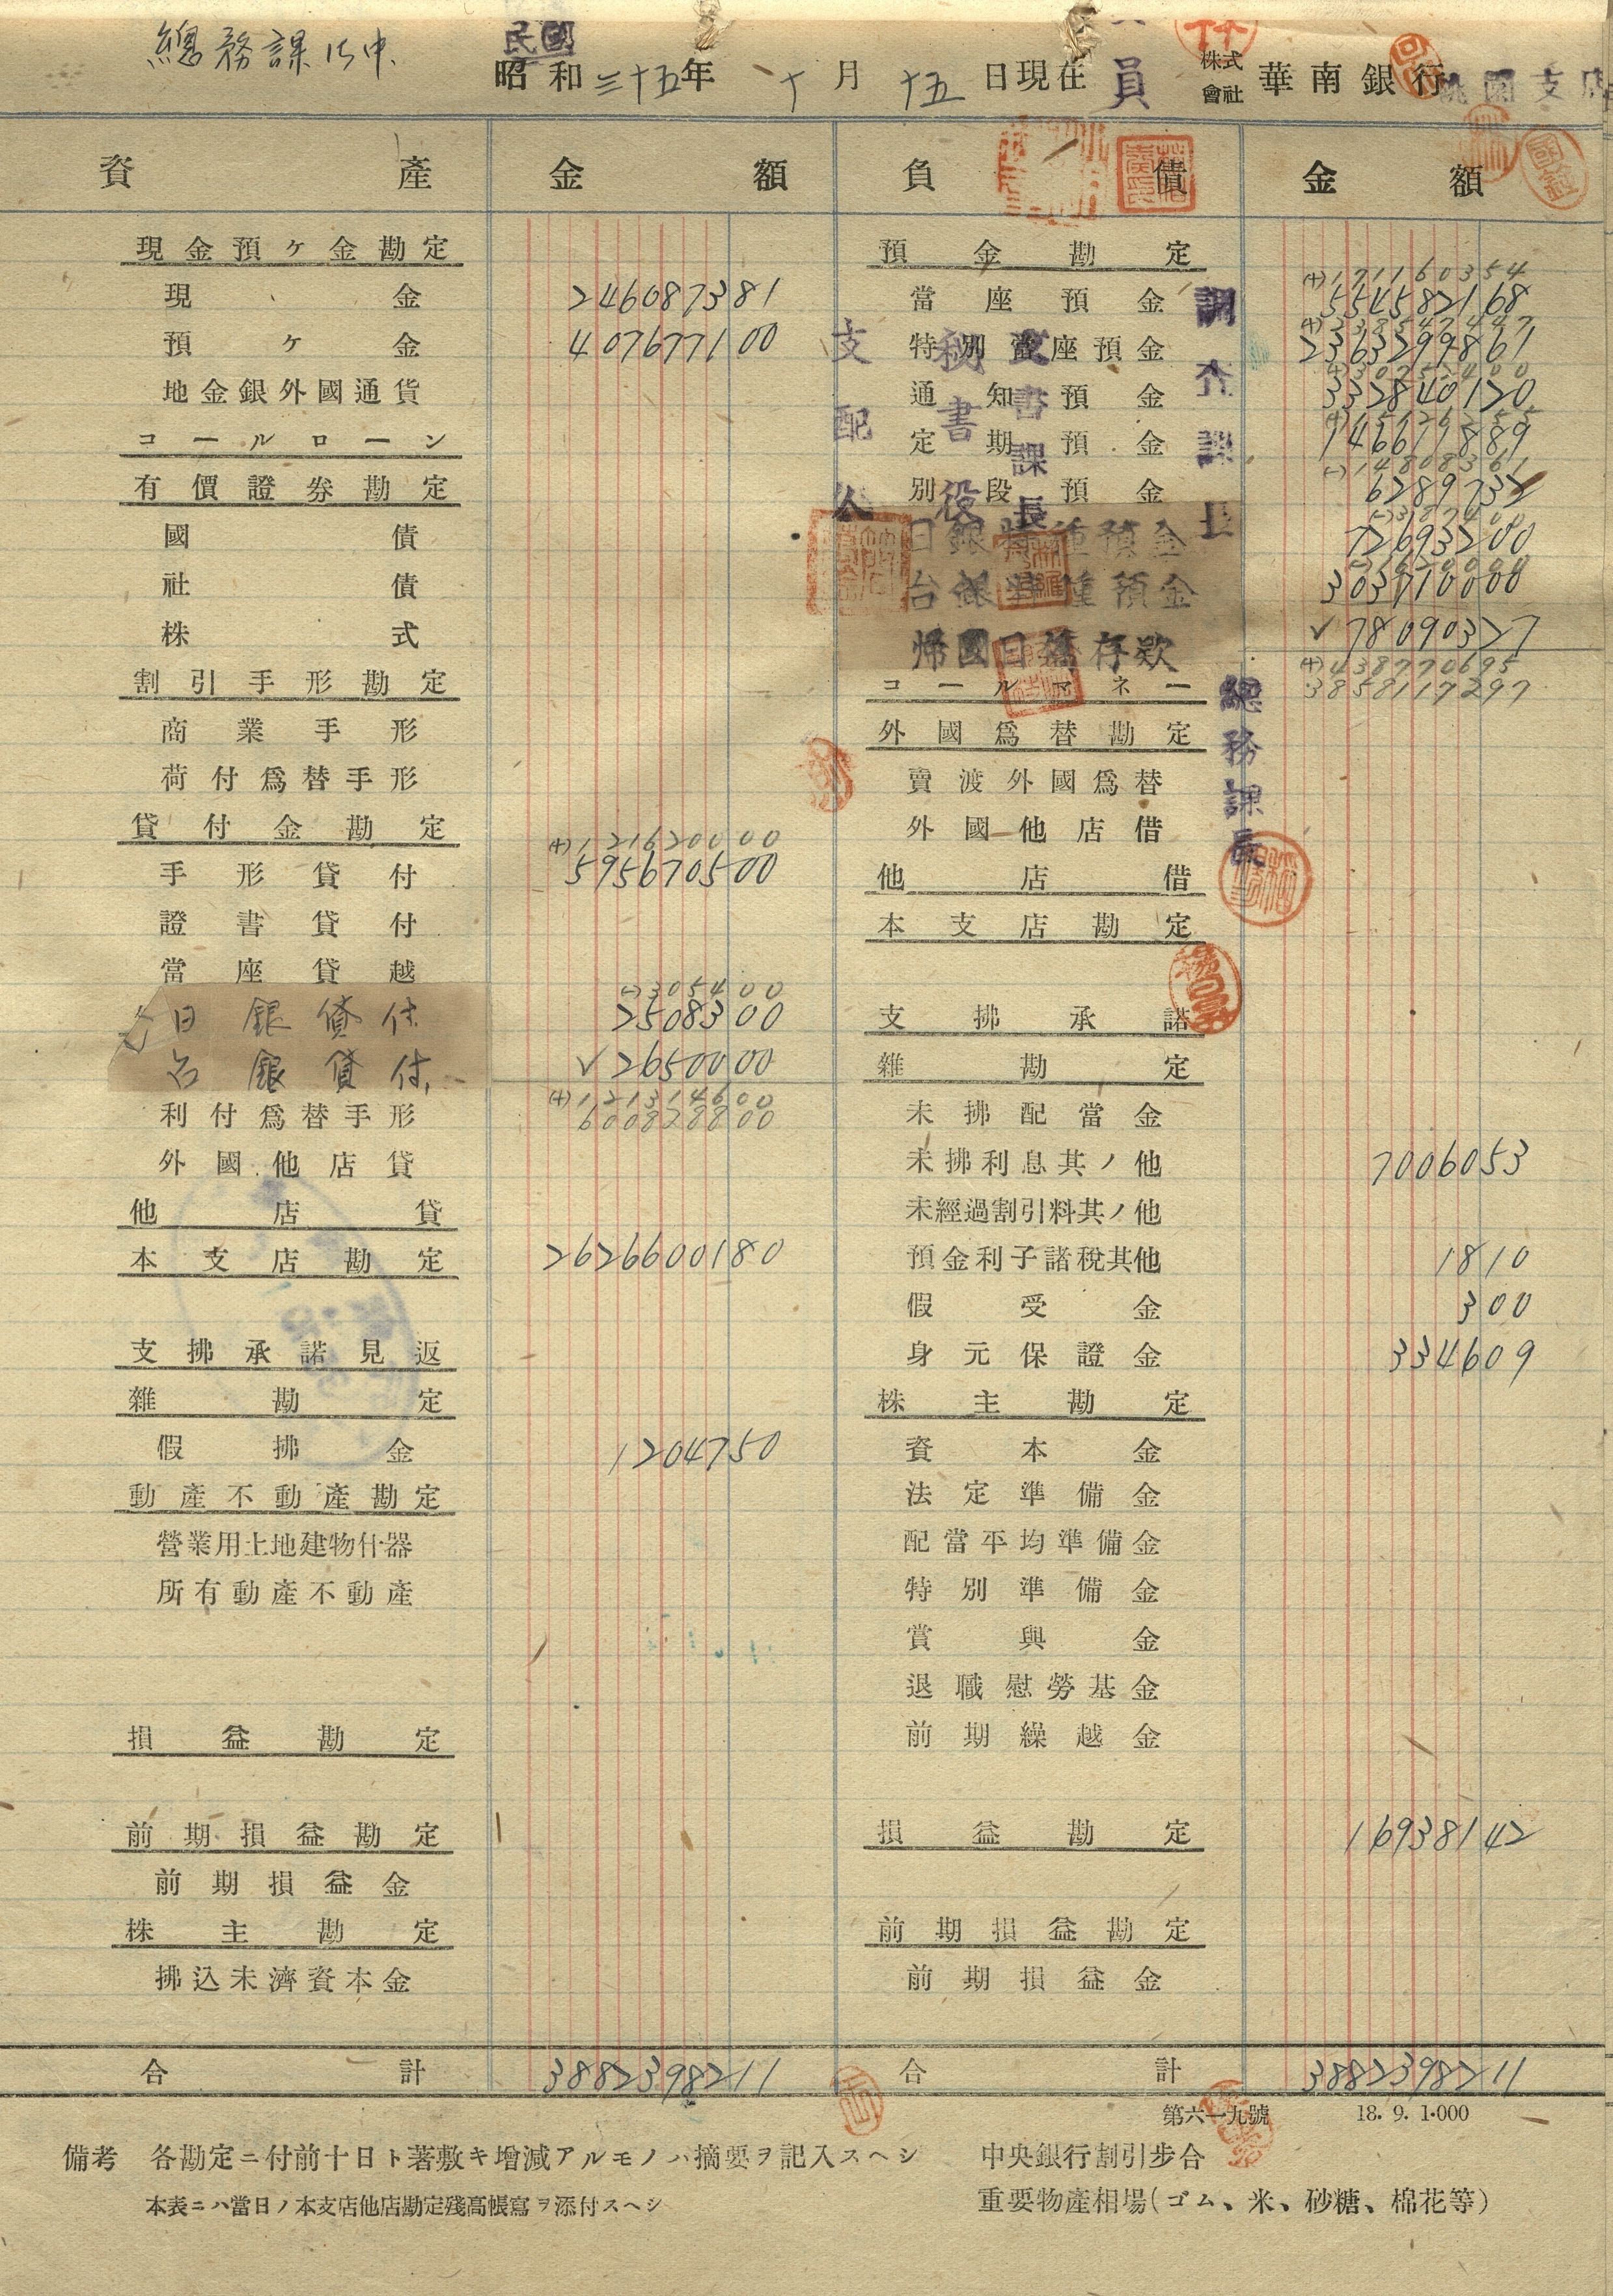 總務課御中
民國
昭和三十五年 十月 十五日現在 員 株式會社 華南銀行桃園支店
資產 金額 負債 金額
現金預ケ金勘定
現金 2460873 81
預ケ金 4076771 00
地金銀外國通貨
コールローン
有價證券勘定
國債
社債
株式
割引手形勘定
商業手形
荷付爲替手形
貸付金勘定
(+)1216200 00
手形貸付 5956705 00
證書貸付
當座貸越
(-)3054 00
日銀貸付 25083 00
台銀貸付 √26500 00
(+)1213146 00
利付爲替手形 6008288 00
外國他店貸
他店貸
本支店勘定 26266001 80
支拂承諾見返
雜勘定
假拂金 12047 50
動產不動產勘定
營業用土地建物什器
所有動產不動產
損益勘定
前期損益勘定
前期損益金
株主勘定
拂込未濟資本金
合計 38823982 11
預金勘定
(+)1711603 54
當座預金 5545821 68
特別當座預金 23632998 61
通知預金 3328401 20
定期預金 1466118 89
(-)148083 61
別段預金 628973 2
日銀特種預金 726932 00
台銀特種預金 3037100 00
帰國日僑存款 √780903 27
(+)4387706 95
38581172 97
コールマネー
外國爲替勘定
賣渡外國爲替
外國他店借
他店借
本支店勘定
支拂承諾
雜勘定
未拂配當金
未拂利息其ノ他 70060 53
未經過割引料其ノ他
預金利子諸稅其他 18 10
假受金 3 00
身元保證金 3346 09
株主勘定
資本金
法定準備金
配當平均準備金
特別準備金
賞與金
退職慰勞基金
前期繰越金
損益勘定 169381 42
前期損益勘定
前期損益金
合計 38823982 11
支配人
秘書役
文書課長
調查課長
總務課長
第六一九號 18. 9. 1·000
備考 各勘定ニ付前十日ト著敷キ增減アルモノハ摘要ヲ記入スヘシ
本表ニハ當日ノ本支店他店勘定殘高帳寫ヲ添付スヘシ
中央銀行割引步合
重要物產相場(ゴム、米、砂糖、棉花等)